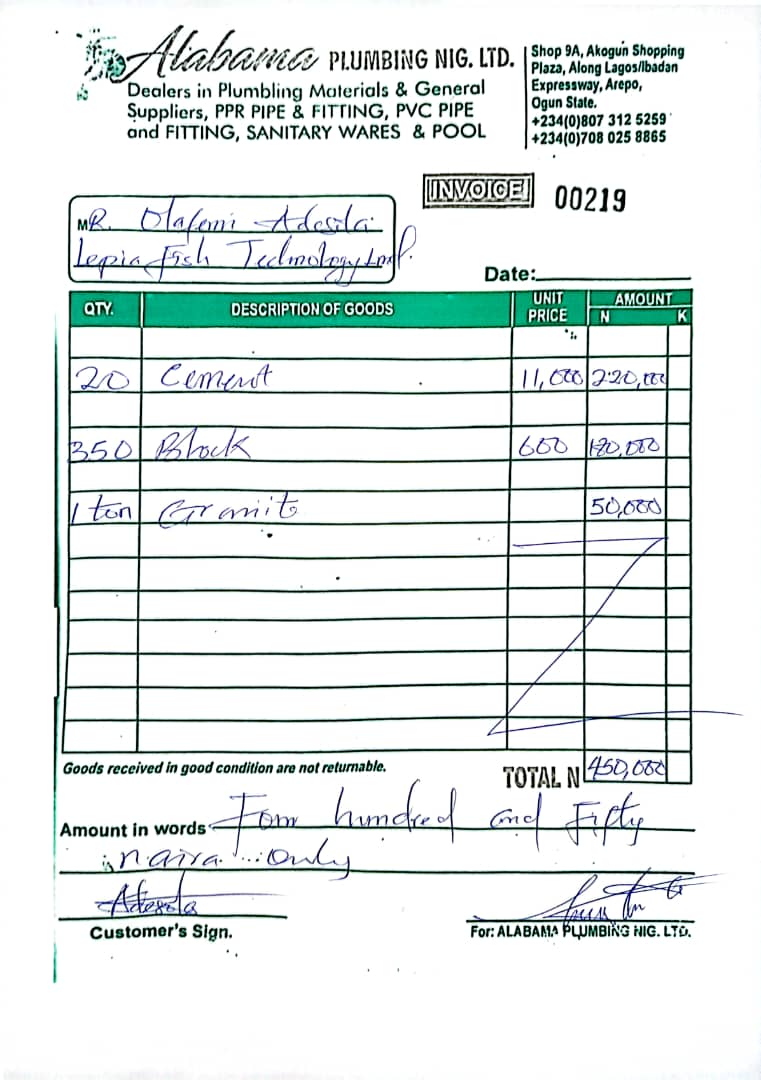 Alabama PLUMBING NIG. LTD.
Dealers in Plumbling Materials & General
Suppliers, PPR PIPE & FITTING, PVC PIPE
and FITTING, SANITARY WARES & POOL
Shop 9A, Akogun Shopping
Plaza, Along Lagos/Ibadan
Expressway, Arepo,
Ogun State.
+234(0)807 312 5259
+234(0)708 025 8865
INVOICE 00219
MR. Olafemi Adesola
Lepia Fish Technology
Date:
QTY. DESCRIPTION OF GOODS UNIT PRICE AMOUNT
N K
20 Cement 11,000 220,000
350 Block 600 180,000
1 ton Granite 50,000
Goods received in good condition are not returnable.
TOTAL N 450,000
Amount in words Four hundred and Fifty
naira only
Adesola
Customer's Sign.
For: ALABAMA PLUMBING NIG. LTD.